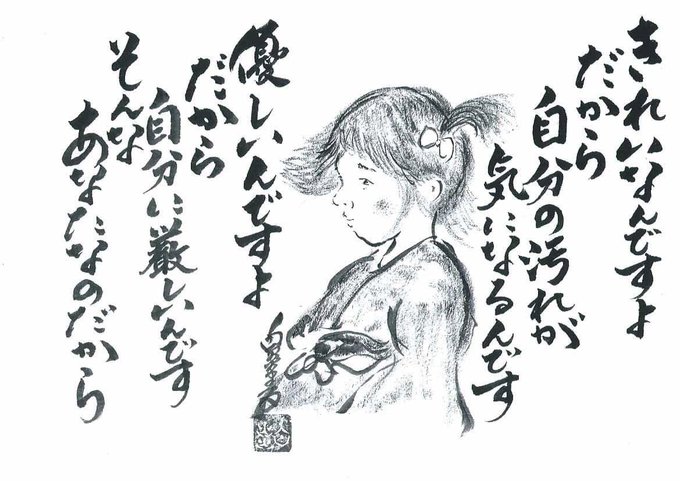 きれいなんですよ
だから
自分の汚れが
気になるんです
優しいんですよ
だから
自分に厳しいんです
そんな
あなたなのだから